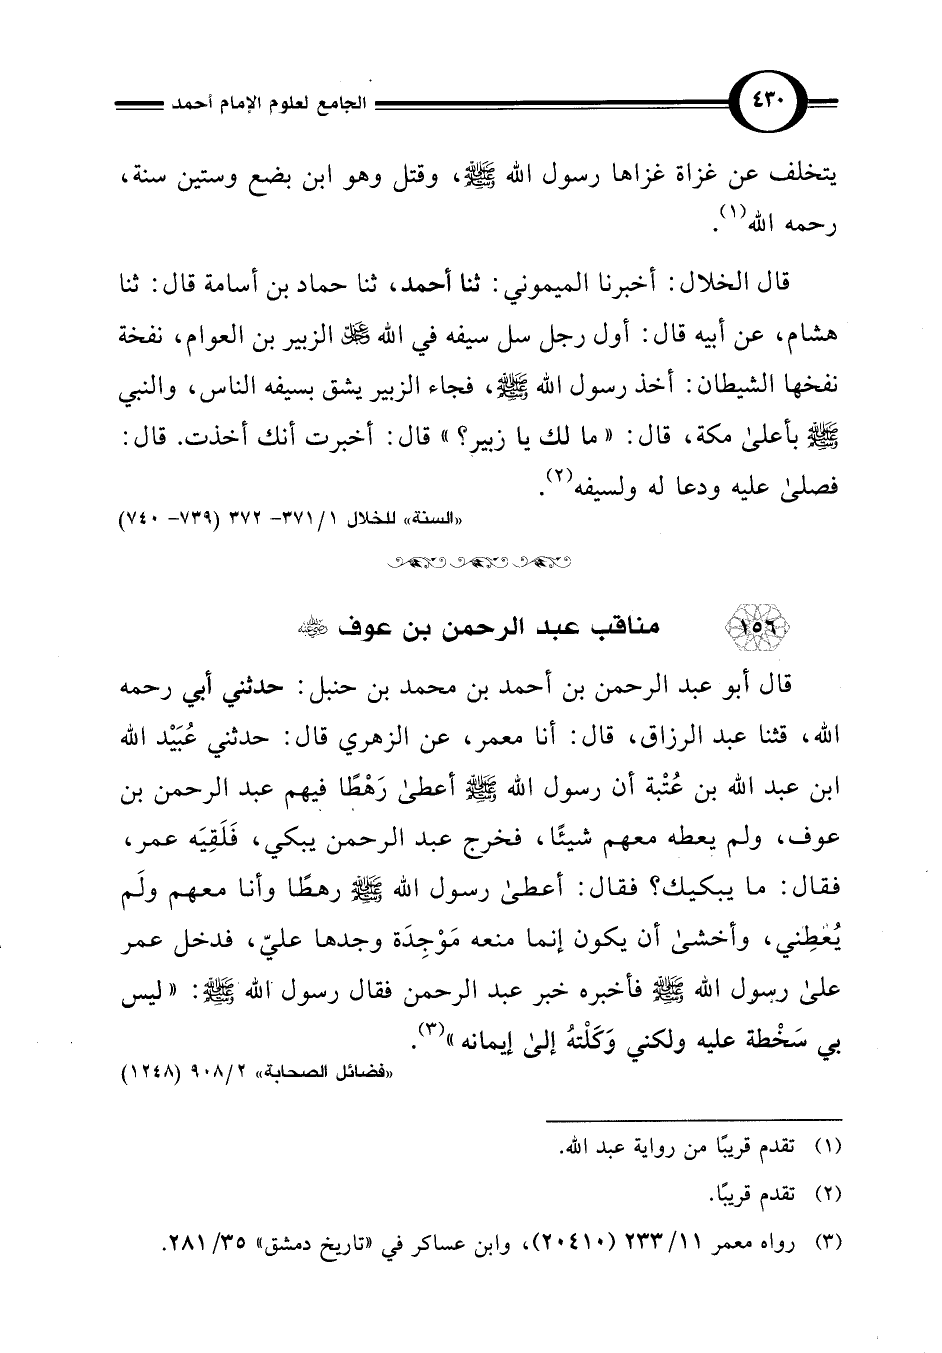 ٤٣٠ الجامع لعلوم الإمام أحمد
يتخلف عن غزاة غزاها رسول الله ﷺ، وقتل وهو ابن بضع وستين سنة،
رحمه الله(١).
قال الخلال: أخبرنا الميموني: ثنا أحمد، ثنا حماد بن أسامة قال: ثنا
هشام، عن أبيه قال: أول رجل سل سيفه في الله ﷻ الزبير بن العوام، نفخة
نفخها الشيطان: أخذ رسول الله ﷺ، فجاء الزبير يشق بسيفه الناس، والنبي
ﷺ بأعلىٰ مكة، قال: «ما لك يا زبير؟» قال: أخبرت أنك أخذت. قال:
فصلىٰ عليه ودعا له ولسيفه(٢).
«السنة» للخلال ١/ ٣٧١- ٣٧٢ (٧٣٩- ٧٤٠)
١٥٦ مناقب عبد الرحمن بن عوف رضي الله عنه
قال أبو عبد الرحمن بن أحمد بن محمد بن حنبل: حدثني أبي رحمه
الله، قثنا عبد الرزاق، قال: أنا معمر، عن الزهري قال: حدثني عُبَيْد الله
ابن عبد الله بن عُتْبة أن رسول الله ﷺ أعطىٰ رَهْطًا فيهم عبد الرحمن بن
عوف، ولم يعطه معهم شيئًا، فخرج عبد الرحمن يبكي، فَلَقِيَه عمر،
فقال: ما يبكيك؟ فقال: أعطىٰ رسول الله ﷺ رهطًا وأنا معهم ولَم
يُعْطِني، وأخشىٰ أن يكون إنما منعه مَوْجِدَة وجدها عليّ، فدخل عمر
علىٰ رسول الله ﷺ فأخبره خبر عبد الرحمن فقال رسول الله ﷺ: «ليس
بي سَخْطة عليه ولكني وَكَلْتهُ إلىٰ إيمانه»(٣).
«فضائل الصحابة» ٢/ ٩٠٨ (١٢٤٨)
(١) تقدم قريبًا من رواية عبد الله.
(٢) تقدم قريبًا.
(٣) رواه معمر ١١/ ٢٣٣ (٢٠٤١٠)، وابن عساكر في «تاريخ دمشق» ٣٥/ ٢٨١.